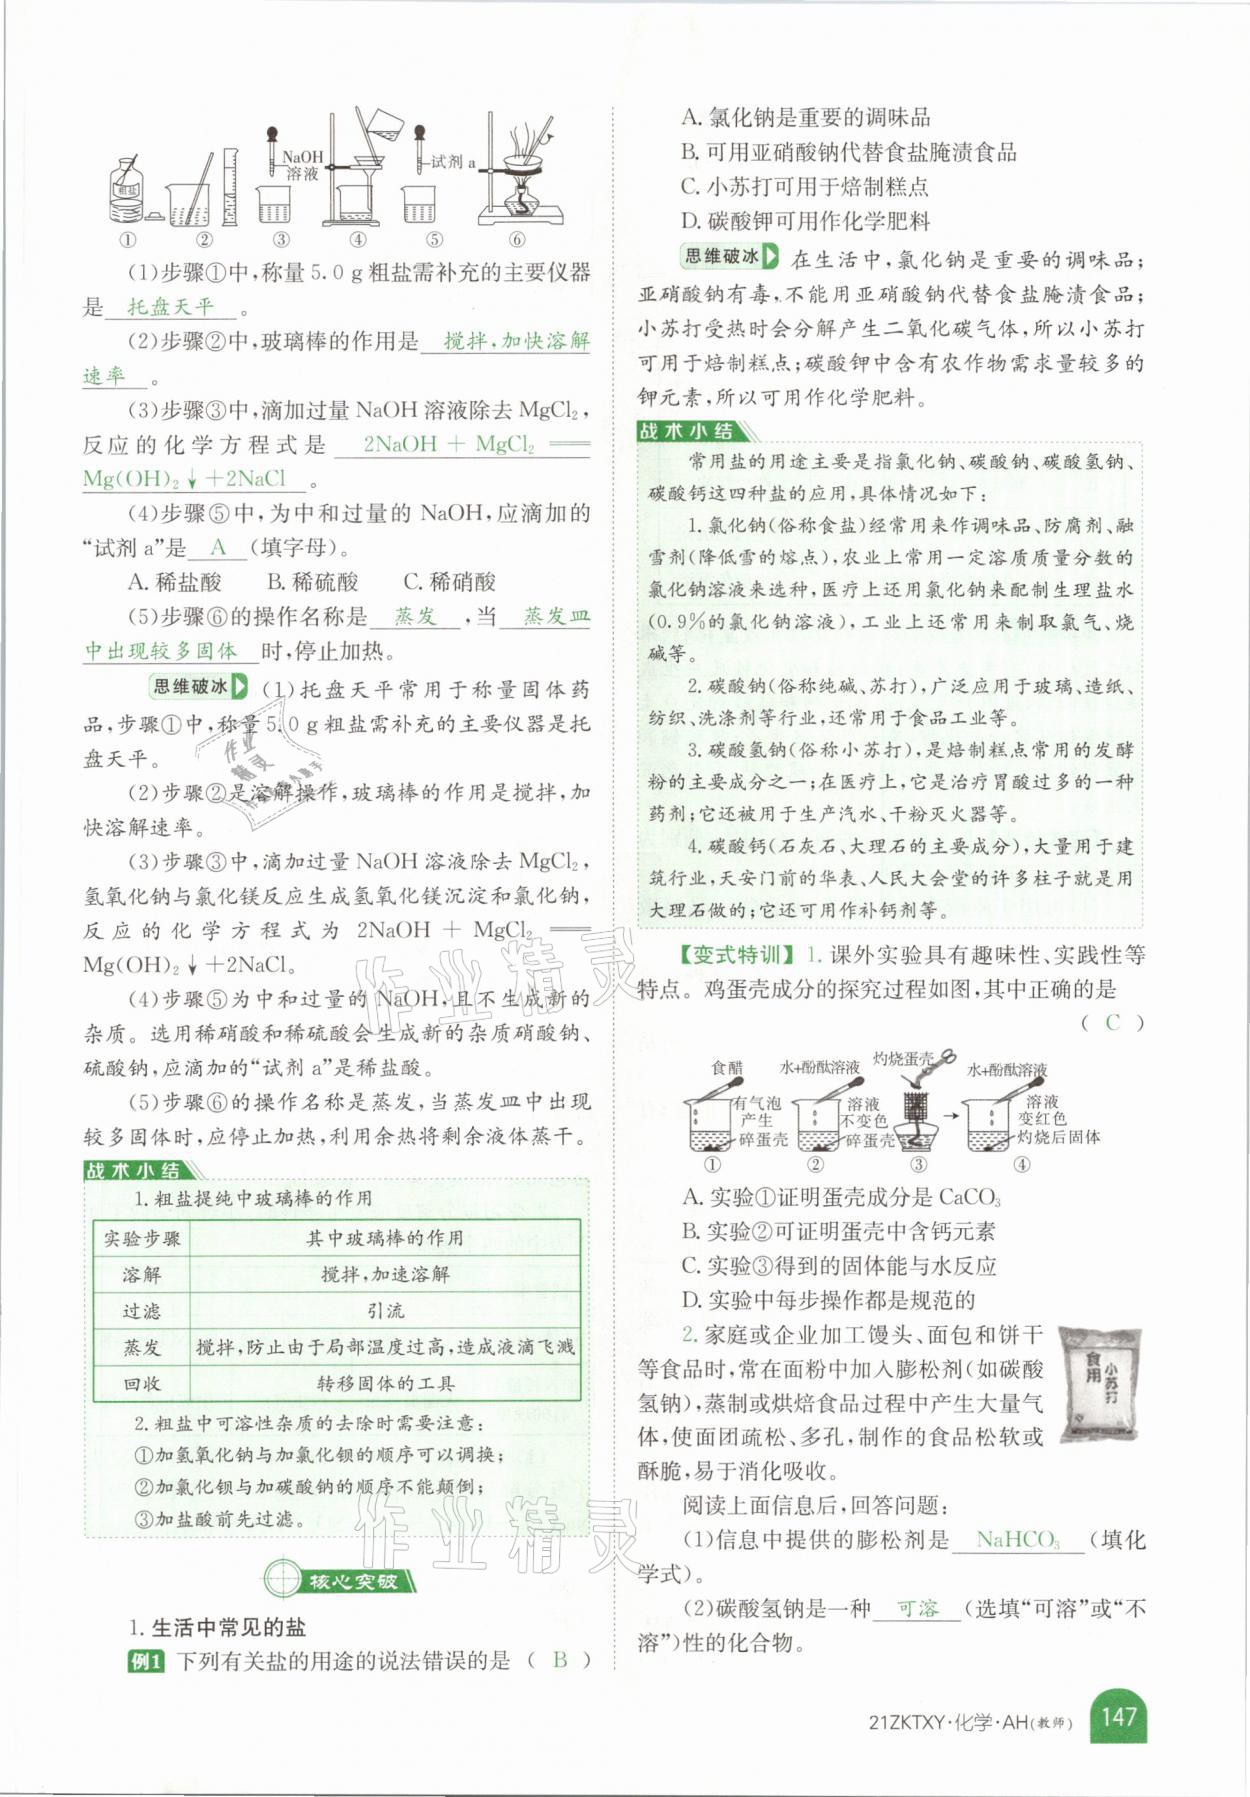 粗盐
NaOH
溶液
试剂 a
① ② ③ ④ ⑤ ⑥
(1)步骤①中,称量 5.0 g 粗盐需补充的主要仪器
是 托盘天平 。
(2)步骤②中,玻璃棒的作用是 搅拌,加快溶解
速率 。
(3)步骤③中,滴加过量 NaOH 溶液除去 MgCl₂,
反应的化学方程式是 2NaOH + MgCl₂ ══
Mg(OH)₂↓+2NaCl 。
(4)步骤⑤中,为中和过量的 NaOH,应滴加的
“试剂 a”是 A (填字母)。
A. 稀盐酸 B. 稀硫酸 C. 稀硝酸
(5)步骤⑥的操作名称是 蒸发 ,当 蒸发皿
中出现较多固体 时,停止加热。
思维破冰 (1)托盘天平常用于称量固体药
品,步骤①中,称量 5.0 g 粗盐需补充的主要仪器是托
盘天平。
(2)步骤②是溶解操作,玻璃棒的作用是搅拌,加
快溶解速率。
(3)步骤③中,滴加过量 NaOH 溶液除去 MgCl₂,
氢氧化钠与氯化镁反应生成氢氧化镁沉淀和氯化钠,
反应的化学方程式为 2NaOH + MgCl₂ ══
Mg(OH)₂↓+2NaCl。
(4)步骤⑤为中和过量的 NaOH,且不生成新的
杂质。选用稀硝酸和稀硫酸会生成新的杂质硝酸钠、
硫酸钠,应滴加的“试剂 a”是稀盐酸。
(5)步骤⑥的操作名称是蒸发,当蒸发皿中出现
较多固体时,应停止加热,利用余热将剩余液体蒸干。
战术小结
1. 粗盐提纯中玻璃棒的作用
实验步骤 其中玻璃棒的作用
溶解 搅拌,加速溶解
过滤 引流
蒸发 搅拌,防止由于局部温度过高,造成液滴飞溅
回收 转移固体的工具
2. 粗盐中可溶性杂质的去除时需要注意:
①加氢氧化钠与加氯化钡的顺序可以调换;
②加氯化钡与加碳酸钠的顺序不能颠倒;
③加盐酸前先过滤。
核心突破
1. 生活中常见的盐
例1 下列有关盐的用途的说法错误的是 ( B )
A. 氯化钠是重要的调味品
B. 可用亚硝酸钠代替食盐腌渍食品
C. 小苏打可用于焙制糕点
D. 碳酸钾可用作化学肥料
思维破冰 在生活中,氯化钠是重要的调味品;
亚硝酸钠有毒,不能用亚硝酸钠代替食盐腌渍食品;
小苏打受热时会分解产生二氧化碳气体,所以小苏打
可用于焙制糕点;碳酸钾中含有农作物需求量较多的
钾元素,所以可用作化学肥料。
战术小结
常用盐的用途主要是指氯化钠、碳酸钠、碳酸氢钠、
碳酸钙这四种盐的应用,具体情况如下:
1. 氯化钠(俗称食盐)经常用来作调味品、防腐剂、融
雪剂(降低雪的熔点),农业上常用一定溶质质量分数的
氯化钠溶液来选种,医疗上还用氯化钠来配制生理盐水
(0.9%的氯化钠溶液),工业上还常用来制取氯气、烧
碱等。
2. 碳酸钠(俗称纯碱、苏打),广泛应用于玻璃、造纸、
纺织、洗涤剂等行业,还常用于食品工业等。
3. 碳酸氢钠(俗称小苏打),是焙制糕点常用的发酵
粉的主要成分之一;在医疗上,它是治疗胃酸过多的一种
药剂;它还被用于生产汽水、干粉灭火器等。
4. 碳酸钙(石灰石、大理石的主要成分),大量用于建
筑行业,天安门前的华表、人民大会堂的许多柱子就是用
大理石做的;它还可用作补钙剂等。
【变式特训】1. 课外实验具有趣味性、实践性等
特点。鸡蛋壳成分的探究过程如图,其中正确的是
( C )
食醋 水+酚酞溶液 灼烧蛋壳 水+酚酞溶液
有气泡
产生
碎蛋壳
溶液
不变色
碎蛋壳
溶液
变红色
灼烧后固体
① ② ③ ④
A. 实验①证明蛋壳成分是 CaCO₃
B. 实验②可证明蛋壳中含钙元素
C. 实验③得到的固体能与水反应
D. 实验中每步操作都是规范的
2. 家庭或企业加工馒头、面包和饼干
等食品时,常在面粉中加入膨松剂(如碳酸
氢钠),蒸制或烘焙食品过程中产生大量气
体,使面团疏松、多孔,制作的食品松软或
酥脆,易于消化吸收。
食用
小苏打
阅读上面信息后,回答问题:
(1)信息中提供的膨松剂是 NaHCO₃ (填化
学式)。
(2)碳酸氢钠是一种 可溶 (选填“可溶”或“不
溶”)性的化合物。
21ZKTXY·化学·AH(教师) 147
作业精灵
作业精灵
作业
精灵